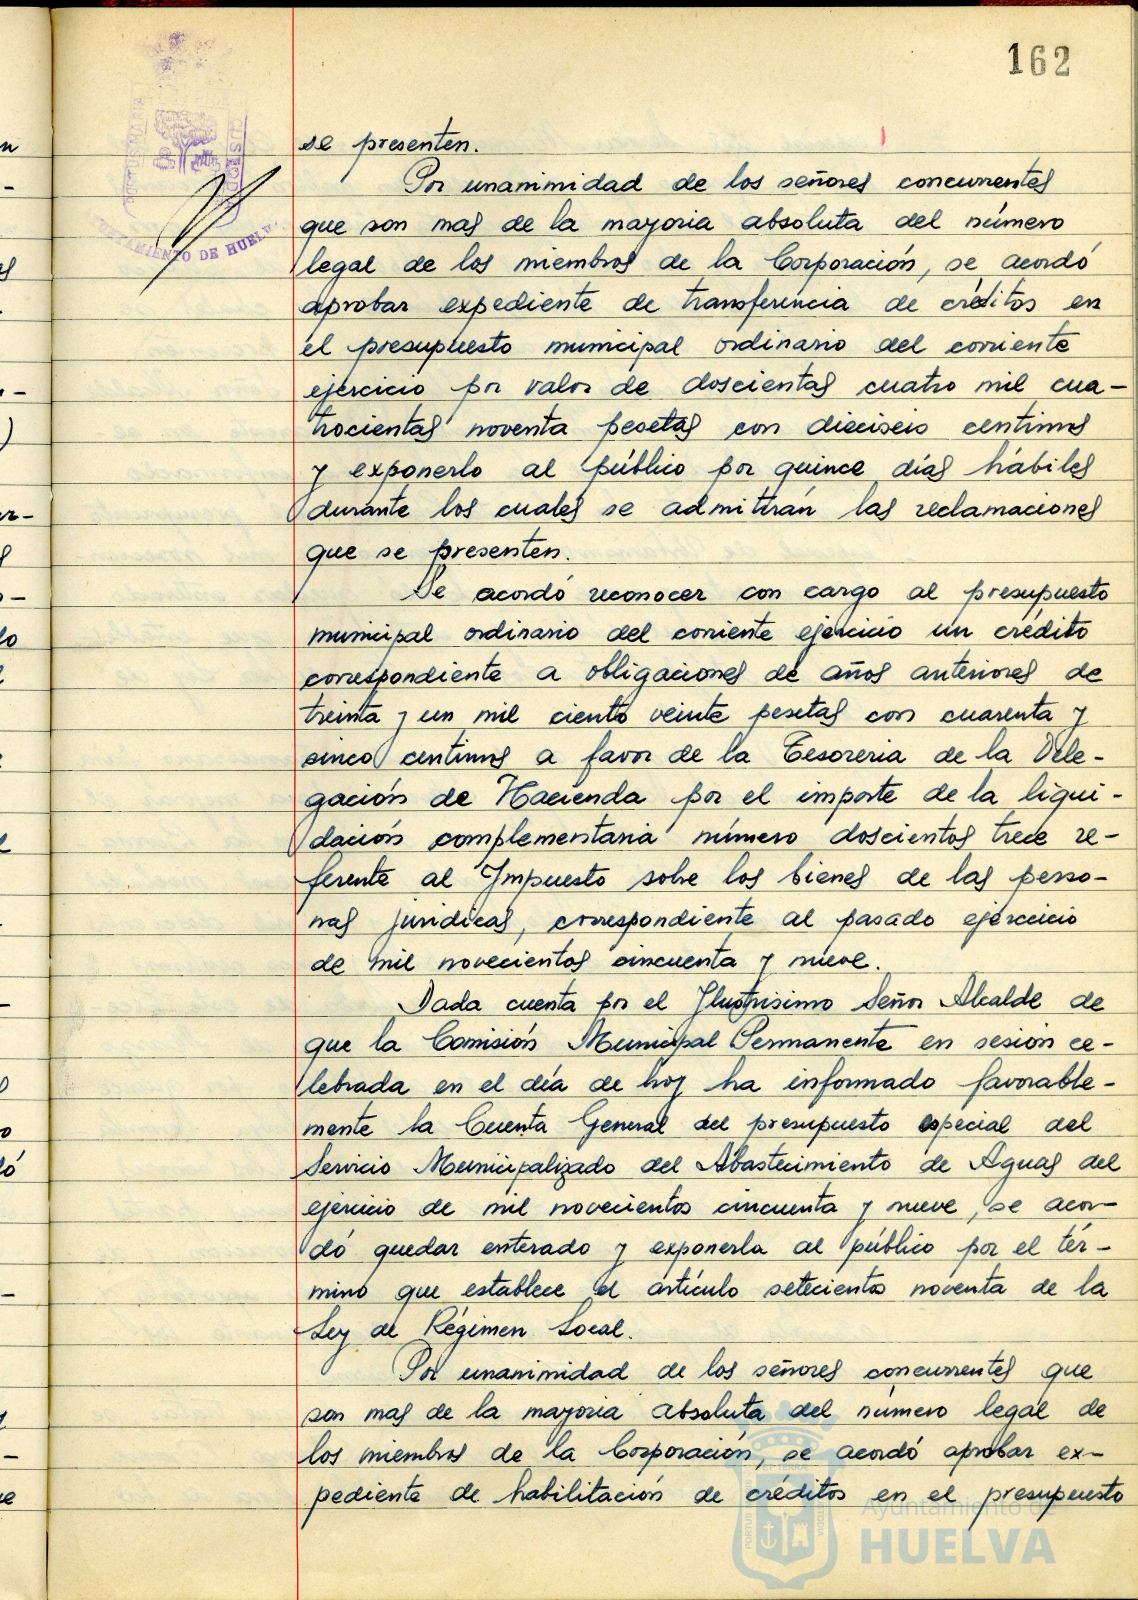 162
se presenten.
Por unanimidad de los señores concurrentes
que son mas de la mayoria absoluta del número
legal de los miembros de la Corporación, se acordó
aprobar expediente de transferencia de créditos en
el presupuesto municipal ordinario del corriente
ejercicio por valor de doscientas cuatro mil cua-
trocientas noventa pesetas con dieciseis centimos
y exponerlo al público por quince días hábiles
durante los cuales se admitirán las reclamaciones
que se presenten.
Se acordó reconocer con cargo al presupuesto
municipal ordinario del corriente ejercicio un crédito
correspondiente a obligaciones de años anteriores de
treinta y un mil ciento veinte pesetas con cuarenta y
cinco centimos a favor de la Tesoreria de la Dele-
gación de Hacienda por el importe de la liqui-
dación complementaria número doscientos trece re-
ferente al Impuesto sobre los bienes de las perso-
nas juridicas, correspondiente al pasado ejercicio
de mil novecientos cincuenta y nueve.
Dada cuenta por el Ilustrisimo Señor Alcalde de
que la Comisión Municipal Permanente en sesión ce-
lebrada en el día de hoy ha informado favorable-
mente la Cuenta General del presupuesto especial del
Servicio Municipalizado del Abastecimiento de Aguas del
ejercicio de mil novecientos cincuenta y nueve, se acor-
dó quedar enterado y exponerla al público por el tér-
mino que establece el artículo setecientos noventa de la
Ley de Régimen Local.
Por unanimidad de los señores concurrentes que
son mas de la mayoria absoluta del número legal de
los miembros de la Corporación, se acordó aprobar ex-
pediente de habilitación de créditos en el presupuesto
DE HUELVA
Ayuntamiento de
HUELVA